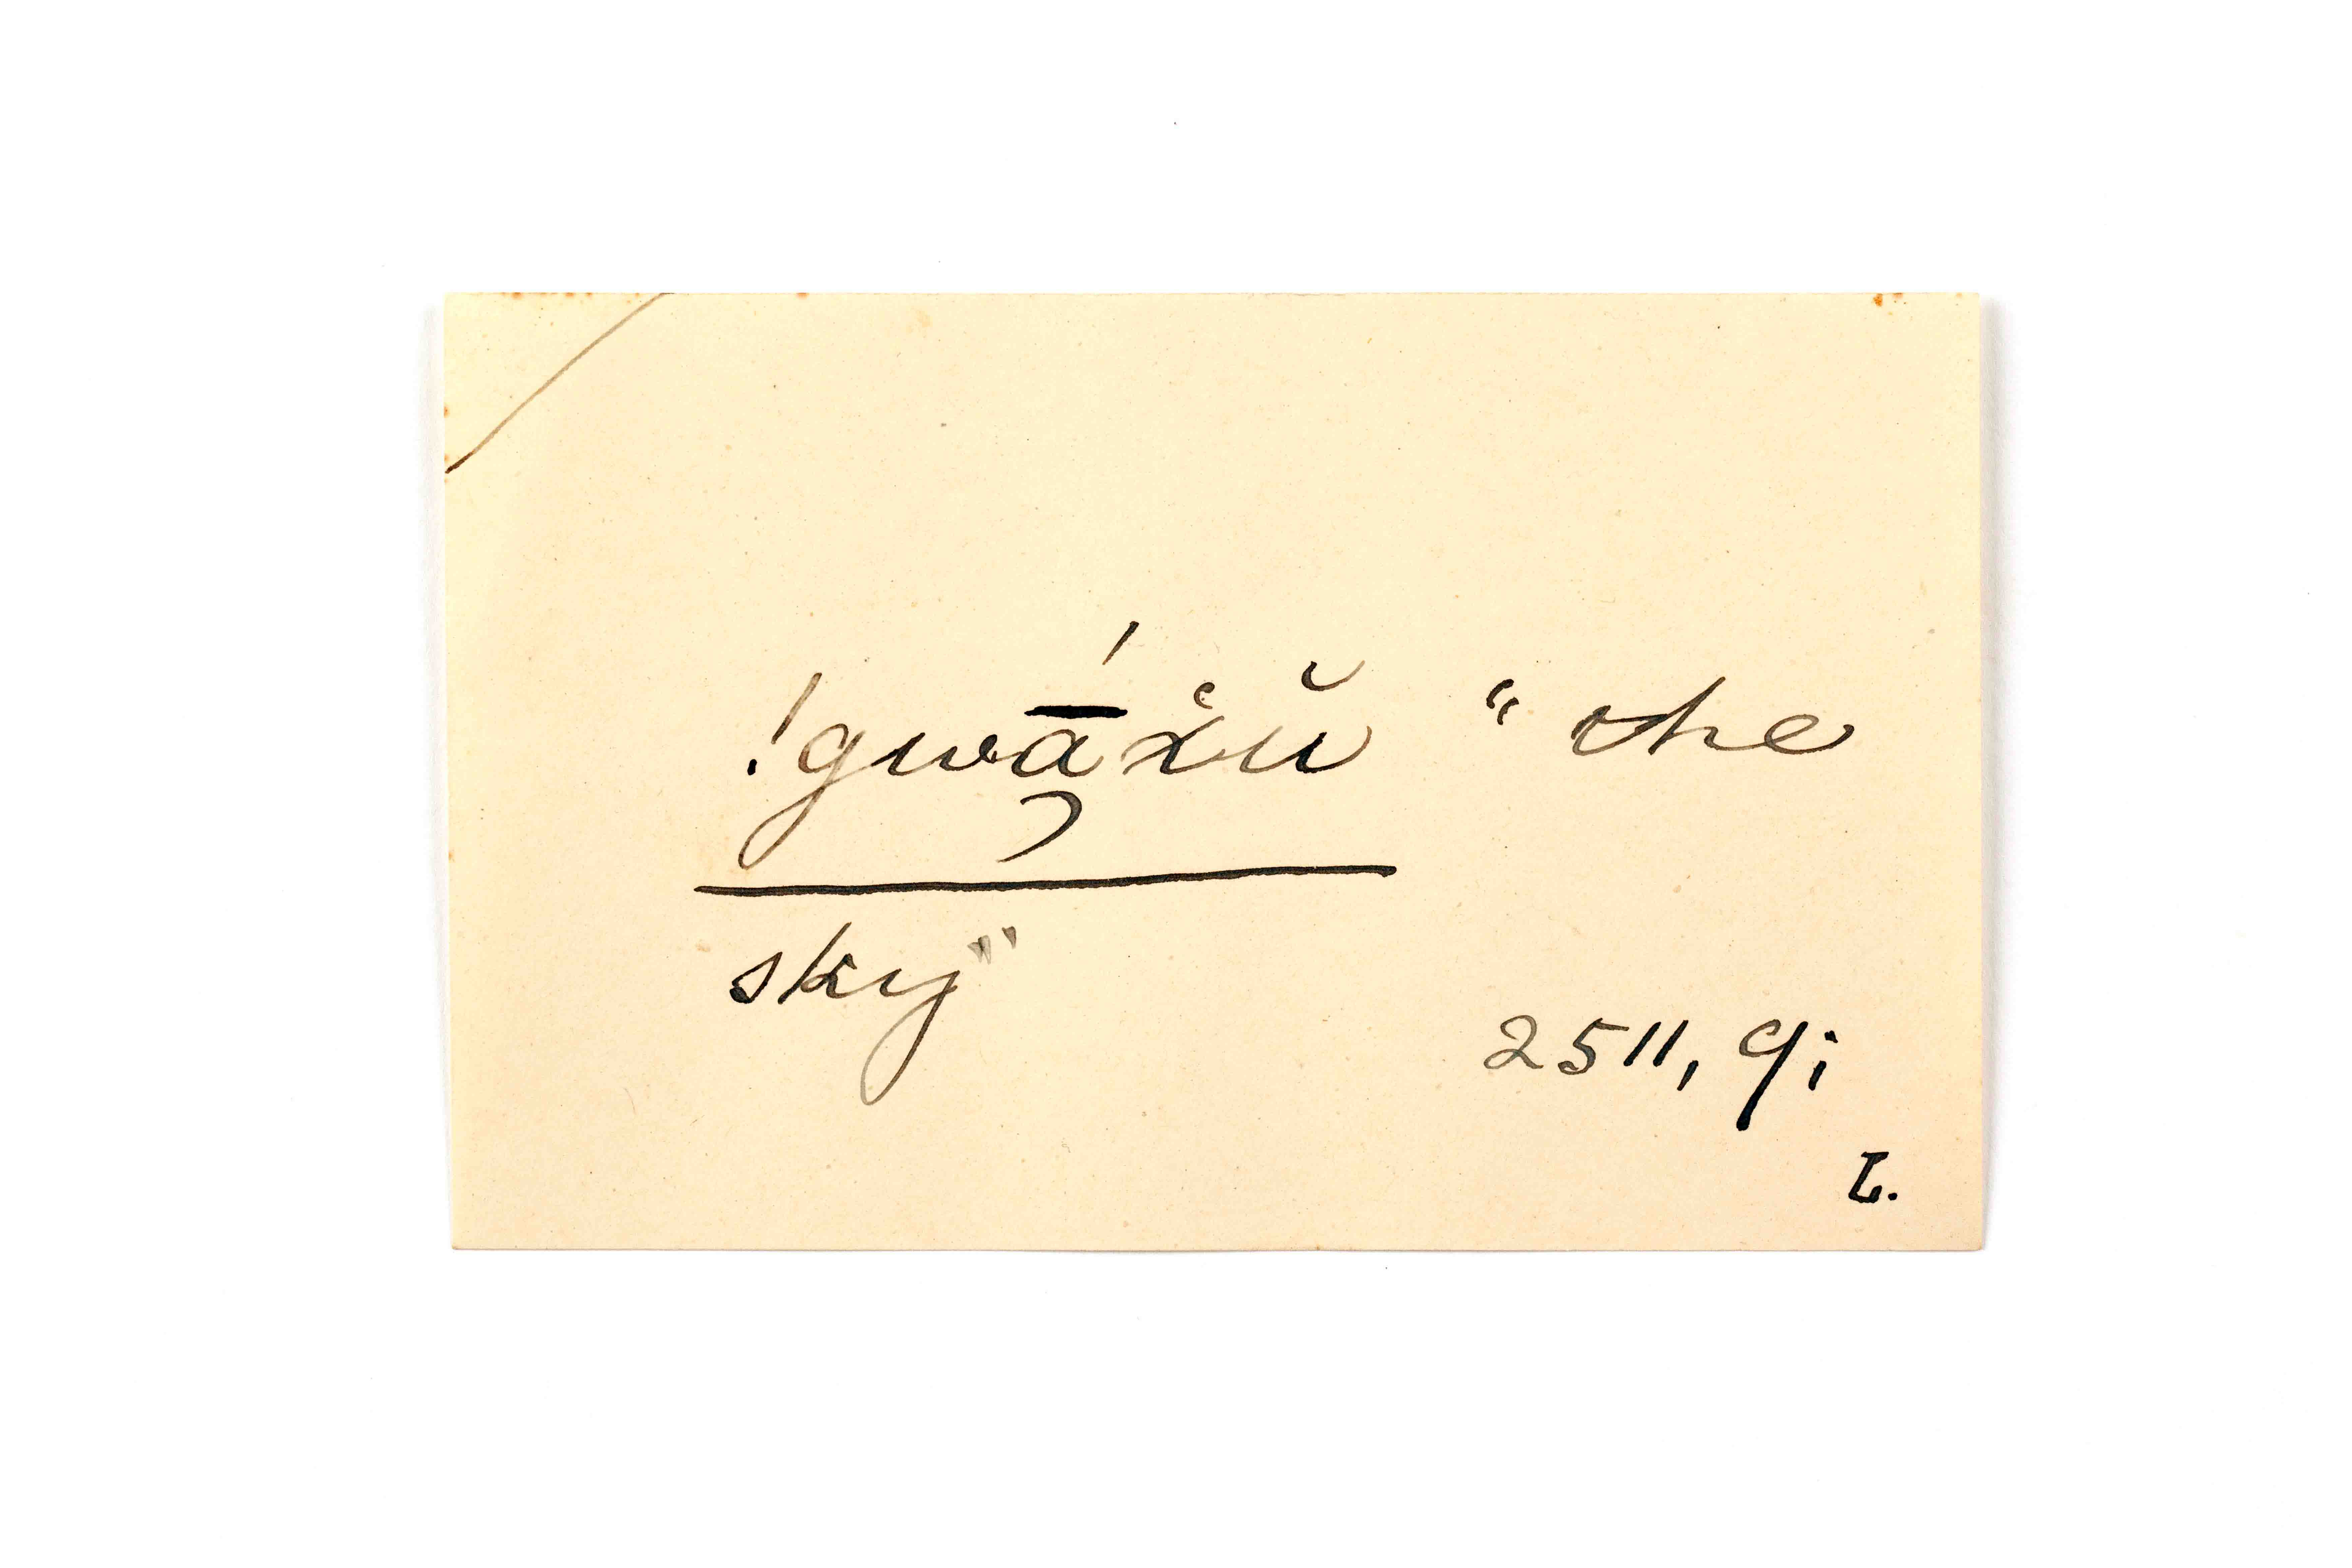 !gwā̧́xŭ "the
sky"
2511, 9;
L.